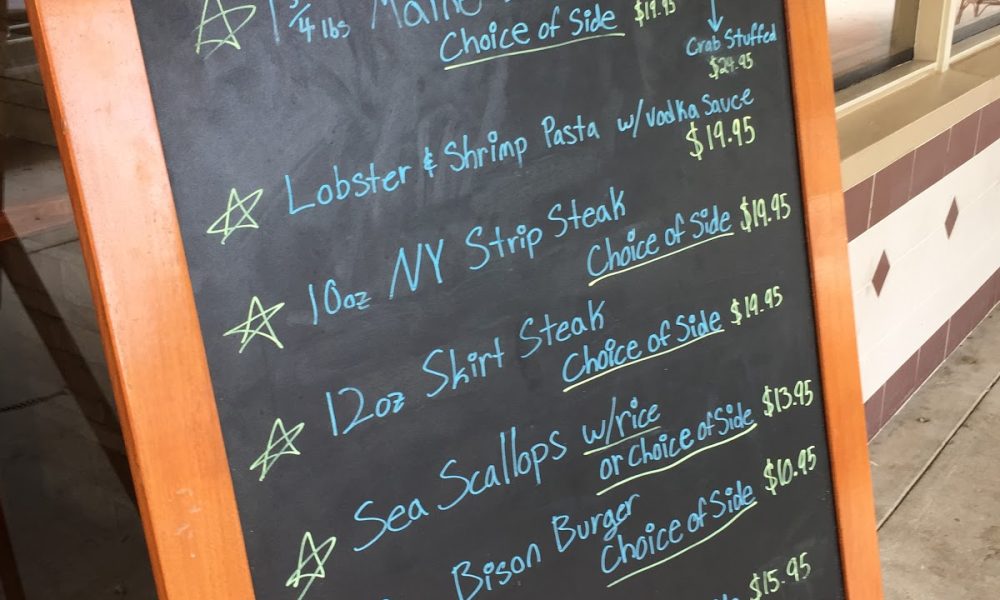 1 3/4 lbs Maine
Choice of Side $19.95
Crab Stuffed
$24.95
Lobster & Shrimp Pasta w/ Vodka Sauce
$19.95
10oz NY Strip Steak
Choice of Side $19.95
12oz Skirt Steak
Choice of Side $19.95
Sea Scallops w/rice
or Choice of Side $13.95
Bison Burger
Choice of Side $10.95
$15.95